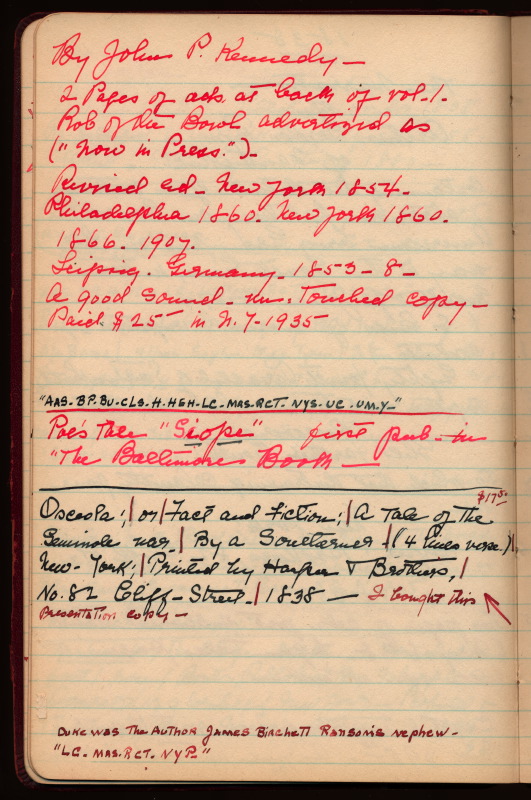 By John P. Kennedy —
2 Pages of ads at back of vol. 1.
Rob of the Bowl advertized as
("now in Press.")-
Revised ed- New York 1854-
Philadelphia 1860. New York 1860.
1866. 1907.
Leipzig. Germany. 1853-8-
A good sound - un. Touched copy -
Paid $25 in N.Y - 1935
"AAS- BP- BU- CLS. H. HEH- LC- MAS. RCT. NYS- UC. UM.Y-"
Poe's Tale "Siope" first pub- in
"The Baltimore Book —
$17.50
Osceola; | or | Fact and Fiction; | A Tale of the
Seminole war. | By a Southerner | (4 lines verse.) |
New-York: | Printed by Harper & Brothers, |
No. 82 Cliff-Street. | 1838 — I bought this
Presentation copy -
Duke was the Author James Birchett Ransom's nephew -
"LC. MAS. RCT. NYP."